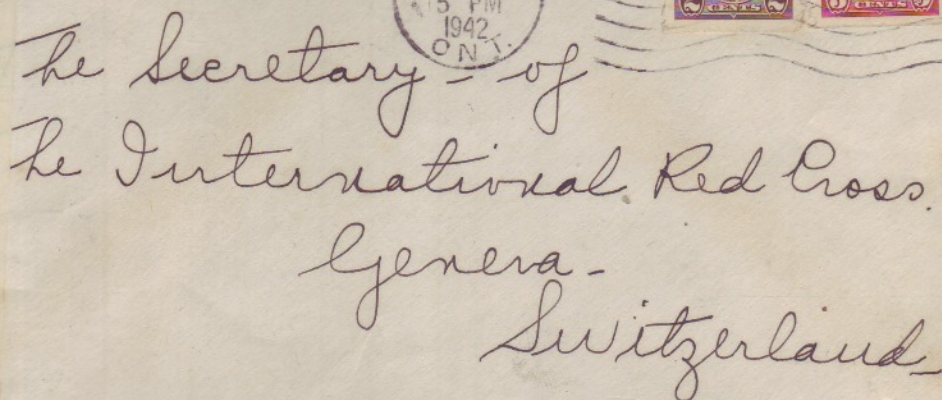 5 PM
1942
ONT.
2 CENTS 2
3 CENTS 3
The Secretary - of
The International Red Cross.
Geneva -
Switzerland -